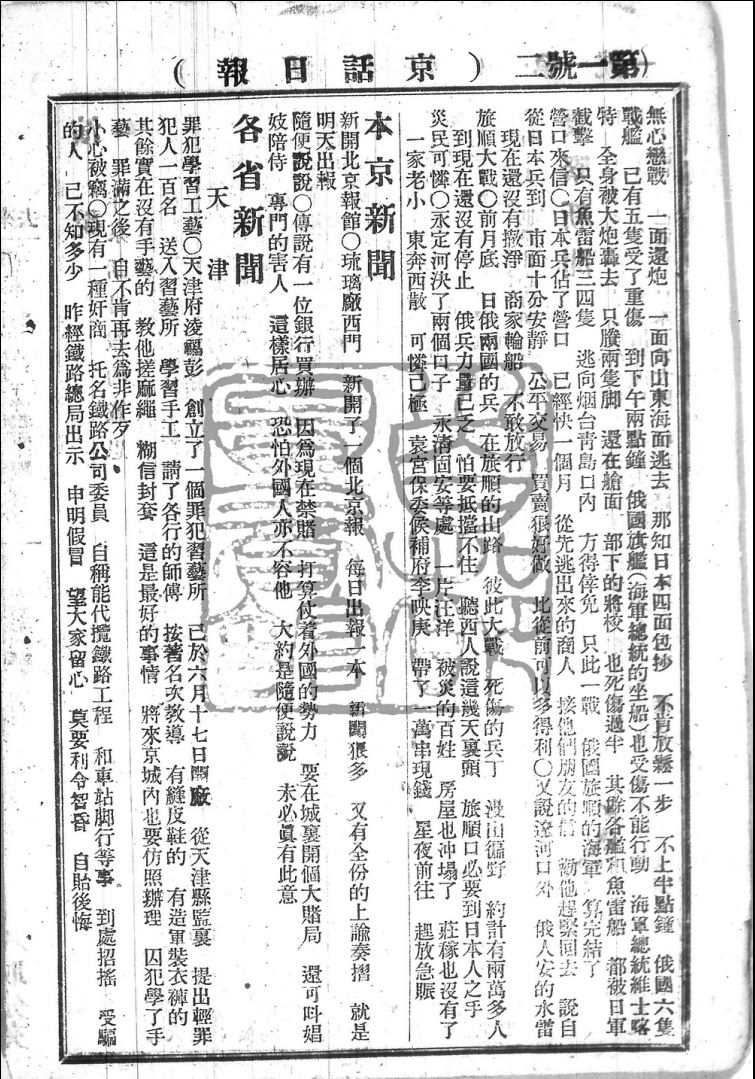 第一號二（京話日報）
無心戀戰　一面還炮　一面向山東海面逃去　那知日本四面包抄　不肯放鬆一步　不上半點鐘　俄國六隻
戰艦　已有五隻受了重傷　到下午兩點鐘　俄國旗艦（海軍總統的坐船）也受傷不能行動　海軍總統維士
特　全身被大炮轟去　只賸兩隻脚　還在艙面　部下的將校　也死傷過半　其餘各艦和魚雷船　都被日軍
截擊　只有魚雷船三四隻　逃向烟台青島口內　方得倖免　只此一戰　俄國旅順的海軍　算完結了
營口來信○日本兵佔了營口　已經快一個月　從先逃出來的商人　接他們朋友的信　勸他趕緊回去　說自
從日本兵到　市面十分安靜　公平交易　買賣狠好做　比從前可以多得利○又說遼河口外　俄人安的水雷
現在還沒有撤淨　商家輪船　不敢放行
旅順大戰○前月底　日俄兩國的兵　在旅順的山路　彼此大戰　死傷的兵丁　漫山徧野　約計有兩萬多人
到現在還沒有停止　俄兵力量已乏　怕要抵擋不住　聽西人說這幾天裏頭　旅順口必要到日本人之手
災民可憐○永定河決了兩個口子　永清固安等處　一片汪洋　被災的百姓　房屋也沖塌了　莊稼也沒有了
一家老小　東奔西散　可憐已極　袁宮保委候補府李映庚　帶了一萬串現錢　星夜前往　趕放急賑
本京新聞
新開北京報館○琉璃廠西門　新開了一個北京報　每日出報一本　新聞狠多　又有全份的上諭奏摺　就是
明天出報
隨便說說○傳說有一位銀行買辦　因爲現在禁賭　打算仗着外國的勢力　要在城裏開個大賭局　還可叫娼
妓陪侍　專門的害人　這樣居心　恐怕外國人亦不容他　大約是隨便說說　未必眞有此意
各省新聞
天津
罪犯學習工藝○天津府淩福彭　創立了一個罪犯習藝所　已於六月十七日開廠　從天津縣監裏　提出輕罪
犯人一百名　送入習藝所　學習手工　請了各行的師傅　按著名次教導　有縫皮鞋的　有造軍裝衣褲的
其餘實在沒有手藝的　教他搓麻繩　糊信封套　這是最好的事情　將來京城內也要仿照辦理　囚犯學了手
藝　罪滿之後　自不肯再去爲非作歹
小心被騙○現有一種奸商　托名鐵路公司委員　自稱能代攬鐵路工程　和車站脚行等事　到處招搖　受騙
的人　已不知多少　昨經鐵路總局出示　申明假冒　望大家留心　莫要利令智昏　自貽後悔